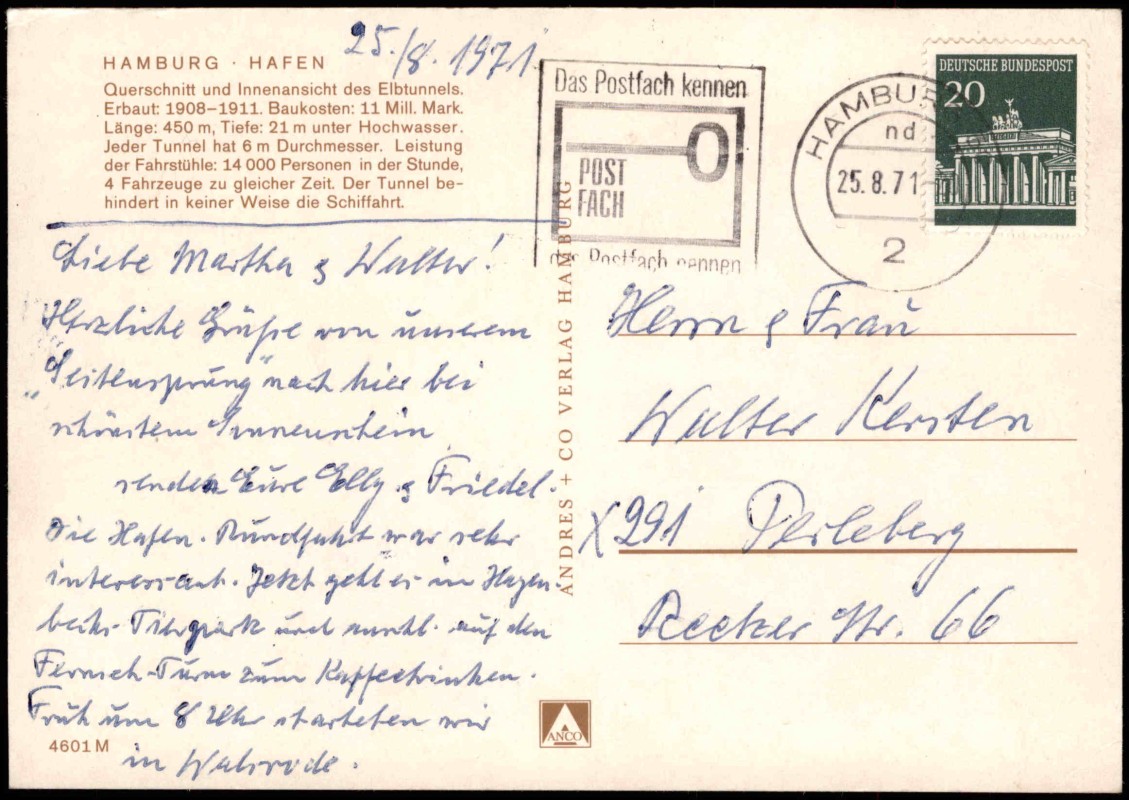 25./8. 1971
HAMBURG · HAFEN
Querschnitt und Innenansicht des Elbtunnels.
Erbaut: 1908–1911. Baukosten: 11 Mill. Mark.
Länge: 450 m, Tiefe: 21 m unter Hochwasser.
Jeder Tunnel hat 6 m Durchmesser. Leistung
der Fahrstühle: 14 000 Personen in der Stunde,
4 Fahrzeuge zu gleicher Zeit. Der Tunnel be-
hindert in keiner Weise die Schiffahrt.
Liebe Martha & Walter!
Herzliche Grüße von unserem
„Seitensprung" nach hier bei
schönstem Sonnenschein
senden Eure Elly & Friedel.
Die Hafen-Rundfahrt war sehr
interessant. Jetzt geht es in Hagen-
becks Tierpark und auf den
Fernseh-Turm zum Kaffeetrinken.
Früh um 8 Uhr starteten wir
in Walsrode.
4601 M
Das Postfach kennen
POST
FACH
Das Postfach nennen
HAMBURG
nd
25.8.71
2
DEUTSCHE BUNDESPOST
20
ANDRES + CO VERLAG HAMBURG
ANCO
Herrn & Frau
Walter Kersten
X291 Perleberg
Str. 66